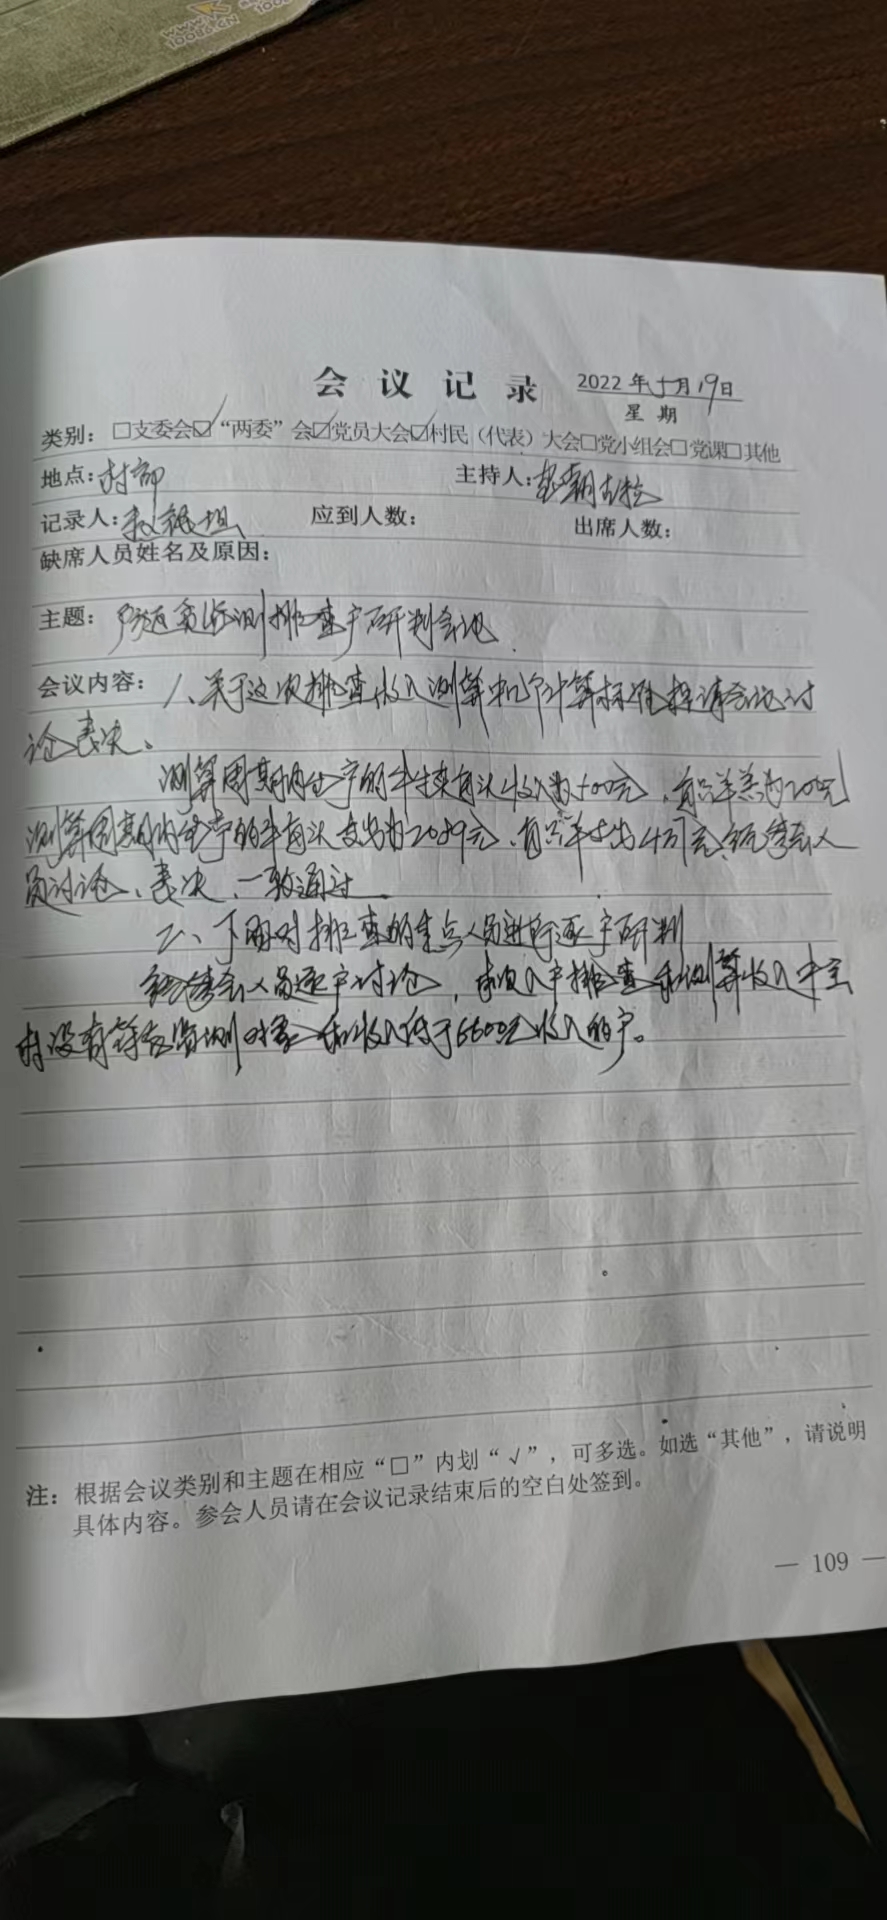 10086.CN
100
会议记录 2022年5月19日
星期
类别：□支委会☑“两委”会☑党员大会☑村民（代表）大会□党小组会□党课□其他
地点：村部 主持人：
记录人： 应到人数： 出席人数：
缺席人员姓名及原因：
主题：防返贫监测排查户研判会议
会议内容：1、关于这次排查收入测算中几个计算标准 请会议讨
论表决。
测算周期内 户的牛 每头收入为500元，每只羊羔为200元
测算周期内 的牛每头支出为2089元，每只羊支出4 元，经参会人
员讨论、表决，一致通过
二、下面对排查的重点人员进行逐户研判
经参会人员逐户讨论，本次入户排查和测算收入中全
村没有符合 监测对象和收入低于6600元收入的户。
注：根据会议类别和主题在相应“□”内划“√”，可多选。如选“其他”，请说明
具体内容。参会人员请在会议记录结束后的空白处签到。
— 109 —